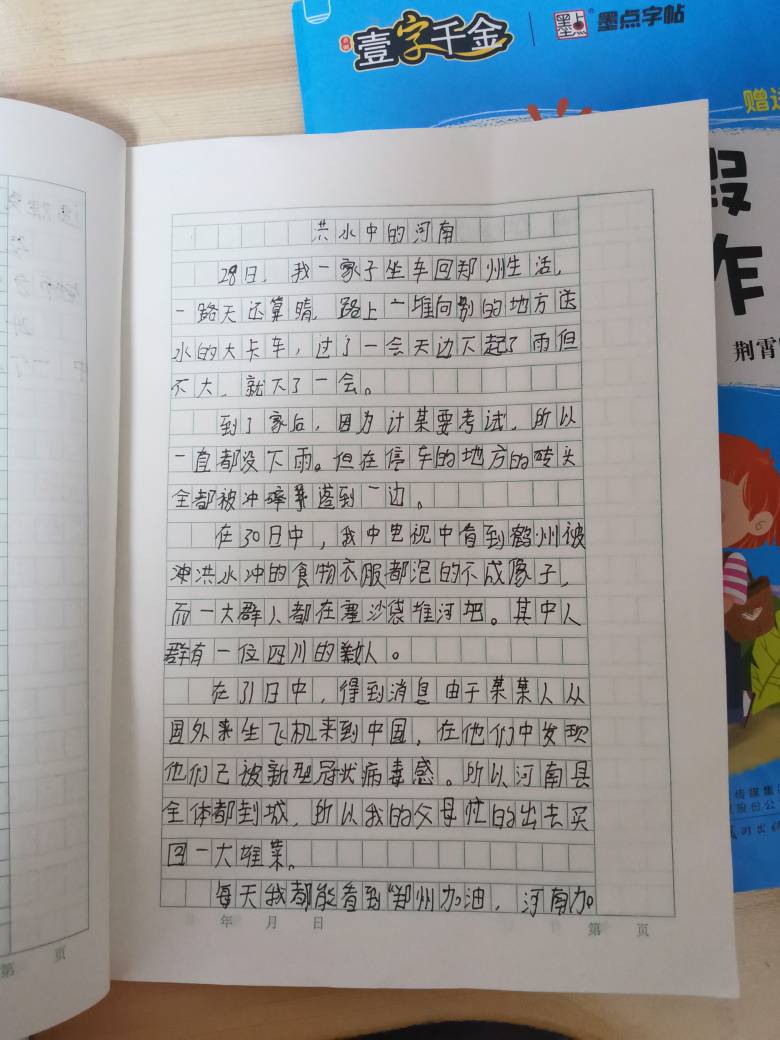 壹字千金
墨点
墨点字帖
赠送
假
作
荆霄
洪水中的河南
28日，我一家子坐车回郑州生活，
一路天还算晴，路上一堆向别的地方送
水的大卡车，过了一会天边下起了雨但
不大，就下了一会。
到了家后，因为计某要考试，所以
一直都没下雨。但在停车的地方的砖头
全都被冲碎 到一边。
在30日中，我中电视中看到鹤州被
冲洪水冲的食物衣服都泡的不成像子，
而一大群人都在塞沙袋堆河把。其中人
群有一位四川的 人。
在31日中，得到消息由于某某人从
国外来坐飞机来到中国，在他们中发现
他们已被新型冠状病毒感。所以河南县
全体都封城，所以我的父母忙的出去买
回一大堆菜。
每天我都能看到“郑州加油，河南加。
年 月 日
第 页
第 页
传媒集
股份公